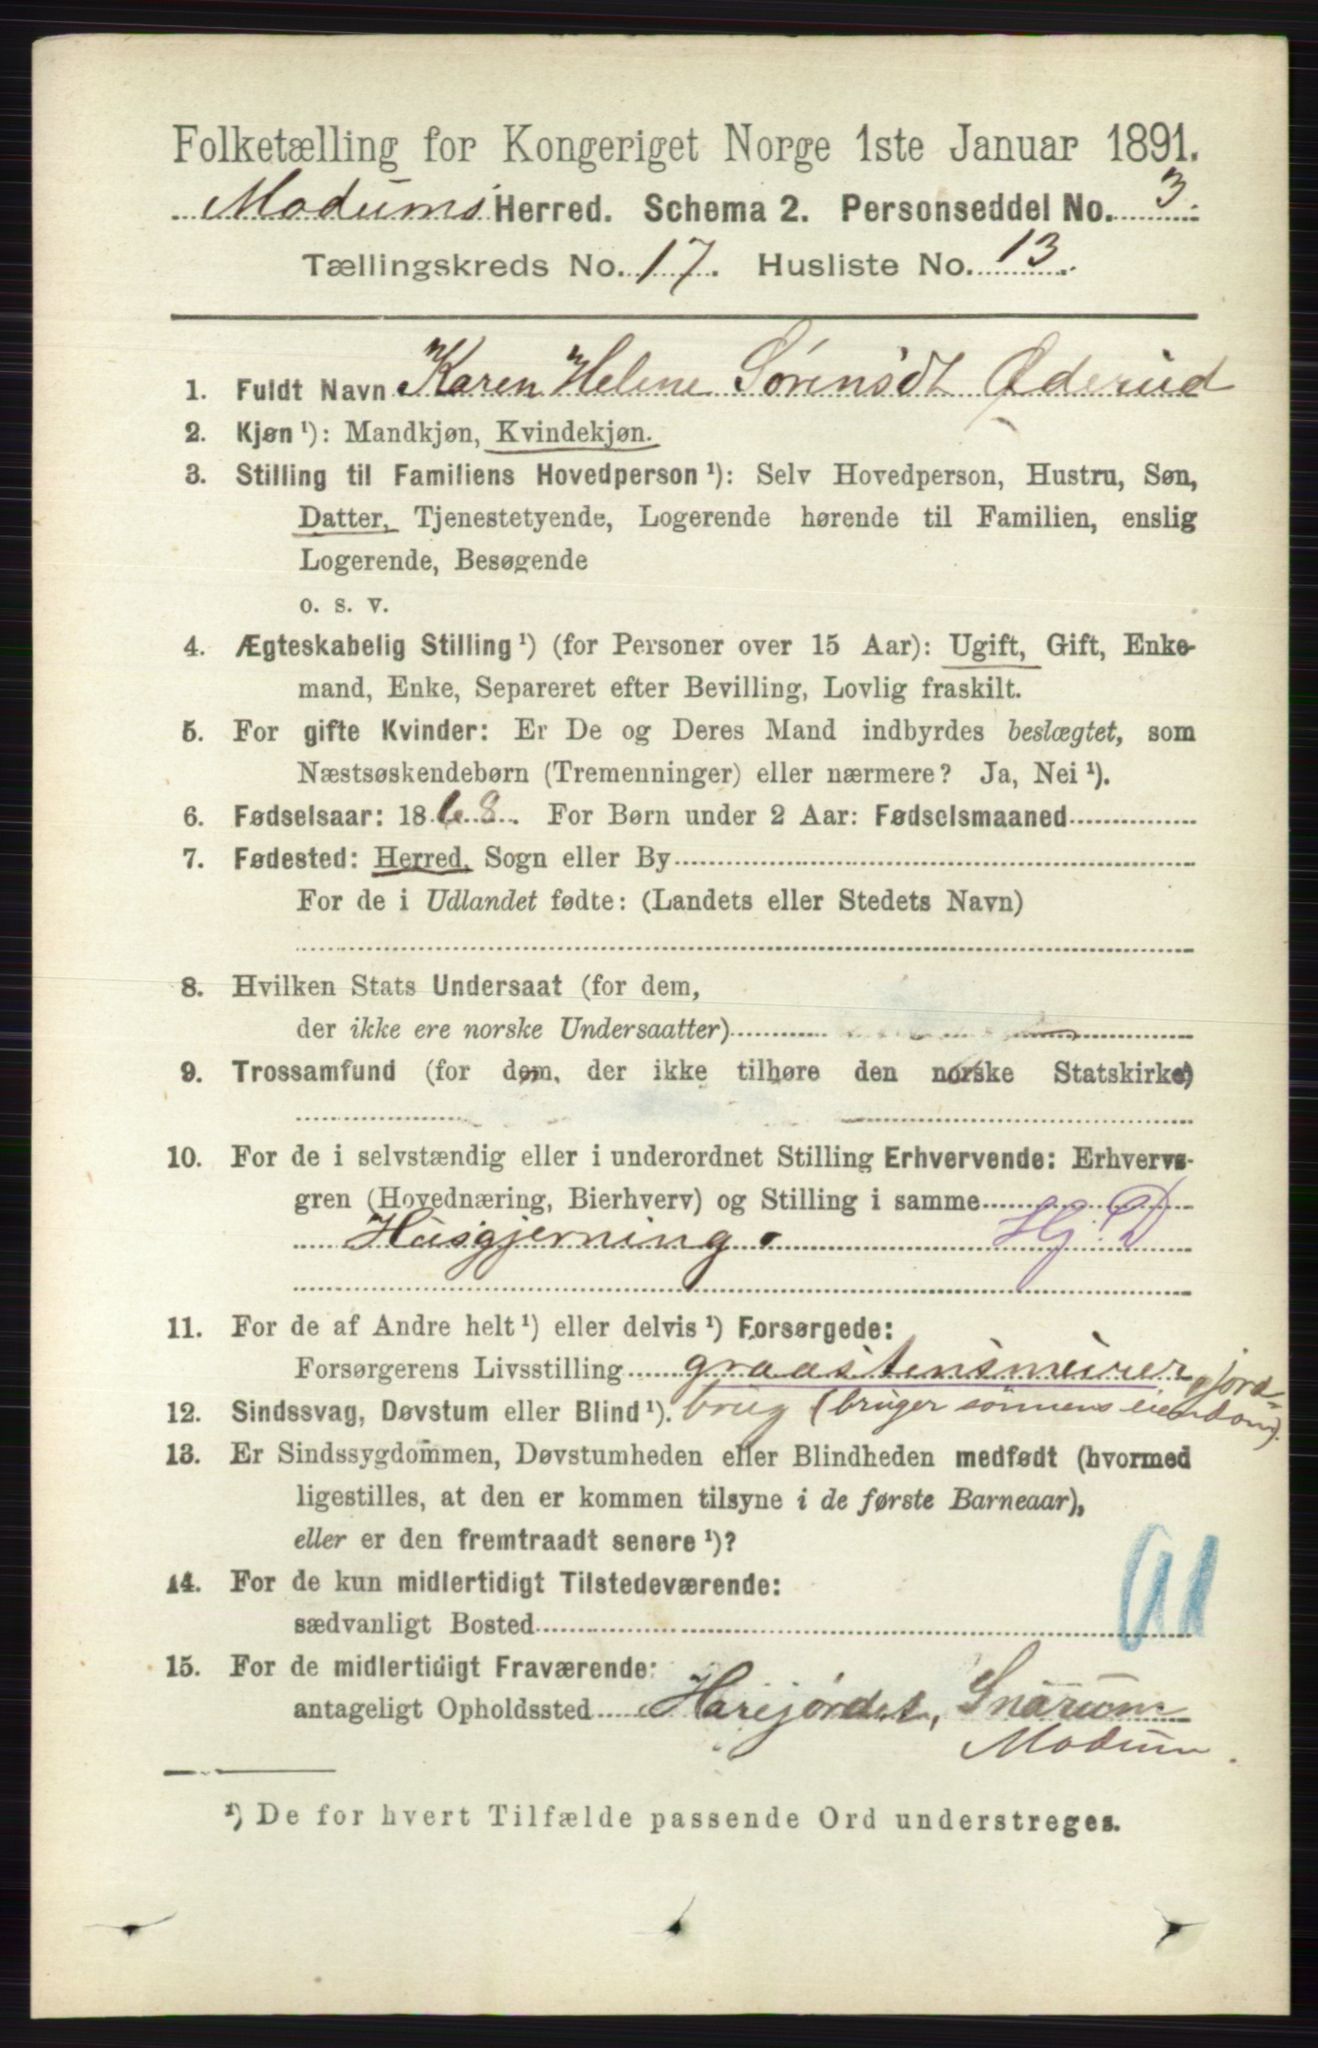 Folketælling for Kongeriget Norge 1ste Januar 1891.
Modums Herred. Schema 2. Personseddel No. 3.
Tællingskreds No. 17. Husliste No. 13.
1. Fuldt Navn Karen Helene Sørensdt Øderud
2. Kjøn ¹): Mandkjøn, Kvindekjøn.
3. Stilling til Familiens Hovedperson ¹): Selv Hovedperson, Hustru, Søn,
Datter, Tjenestetyende, Logerende hørende til Familien, enslig
Logerende, Besøgende
o. s. v.
4. Ægteskabelig Stilling ¹) (for Personer over 15 Aar): Ugift, Gift, Enke-
mand, Enke, Separeret efter Bevilling, Lovlig fraskilt.
5. For gifte Kvinder: Er De og Deres Mand indbyrdes beslægtet, som
Næstsøskendebørn (Tremenninger) eller nærmere? Ja, Nei ¹).
6. Fødselsaar: 1868. For Børn under 2 Aar: Fødselsmaaned
7. Fødested: Herred, Sogn eller By
For de i Udlandet fødte: (Landets eller Stedets Navn)
8. Hvilken Stats Undersaat (for dem,
der ikke ere norske Undersaatter)
9. Trossamfund (for dem, der ikke tilhøre den norske Statskirke)
10. For de i selvstændig eller i underordnet Stilling Erhvervende: Erhvervs-
gren (Hovednæring, Bierhverv) og Stilling i samme
Husgjerning. Hj. D
11. For de af Andre helt ¹) eller delvis ¹) Forsørgede:
Forsørgerens Livsstilling graastensmurer jord-
12. Sindssvag, Døvstum eller Blind ¹). brug (bruger sønnens eiendom).
13. Er Sindssygdommen, Døvstumheden eller Blindheden medfødt (hvormed
ligestilles, at den er kommen tilsyne i de første Barneaar),
eller er den fremtraadt senere ¹)?
14. For de kun midlertidigt Tilstedeværende:
sædvanligt Bosted
15. For de midlertidigt Fraværende:
antageligt Opholdssted Harejordet, Snarum
Modum.
¹) De for hvert Tilfælde passende Ord understreges.